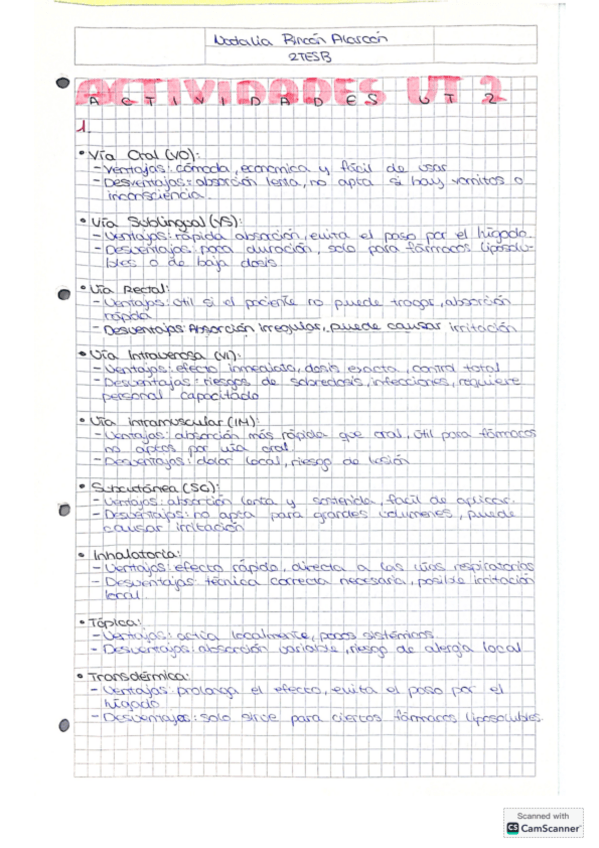 Natalia Rincón Alarcón
2TESB
ACTIVIDADES UT 2
1.
• Vía Oral (VO):
- Ventajas: cómoda, economica y fácil de usar
- Desventajas: absorción lenta, no apta si hay vomitos o
inconsciencia.
• Vía Sublingual (VS):
- Ventajas: rápida absorción, evita el paso por el hígado.
- Desventajas: poca duración, solo para fármacos liposolu-
bles o de baja dosis
• Vía Rectal:
- Ventajas: útil si el paciente no puede tragar, absorción
rápida
- Desventajas: Absorción irregular, puede causar irritación
• Vía Intravenosa (VI):
- Ventajas: efecto inmediato, dosis exacta, control total
- Desventajas: riesgos de sobredosis, infecciones, requiere
personal capacitado
• Vía intramuscular (IM):
- Ventajas: absorción más rápida que oral, útil para fármacos
no aptos por vía oral.
- Desventajas: dolor local, riesgo de lesión
• Subcutánea (SC):
- Ventajas: absorción lenta y sostenida, facil de aplicar.
- Desventajas: no apta para grandes volumenes, puede
causar irritación
• Inhalatoria:
- Ventajas: efecto rápido, directa a las vías respiratorias
- Desventajas: técnica correcta necesaria, posible irritación
local.
• Tópica:
- Ventajas: actúa localmente, pocos sistémicos.
- Desventajas: absorción variable, riesgo de alergia local
• Transdérmica:
- Ventajas: prolonga el efecto, evita el paso por el
hígado
- Desventajas: solo sirve para ciertos fármacos liposolubles.
Scanned with
CS CamScanner